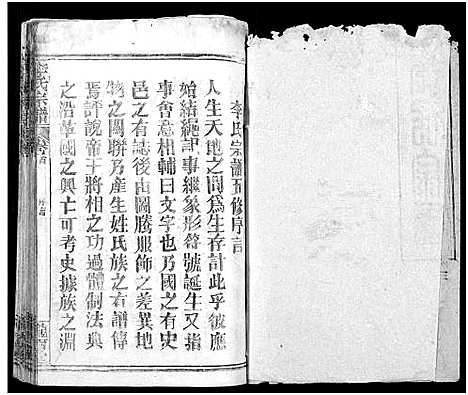 李氏宗譜五修序言
人生天地之間為生存計此乎彼應
始結繩記事繼象形符號誕生又指
事會意相輔曰文字也乃國之有史
邑之有志後由圖騰服飾之差異地
物之關聯乃產生姓氏族之有譜傳
焉評說帝王將相之功過體制法典
之沿革國之興亡可考史據族之淵
李氏宗譜
卷首